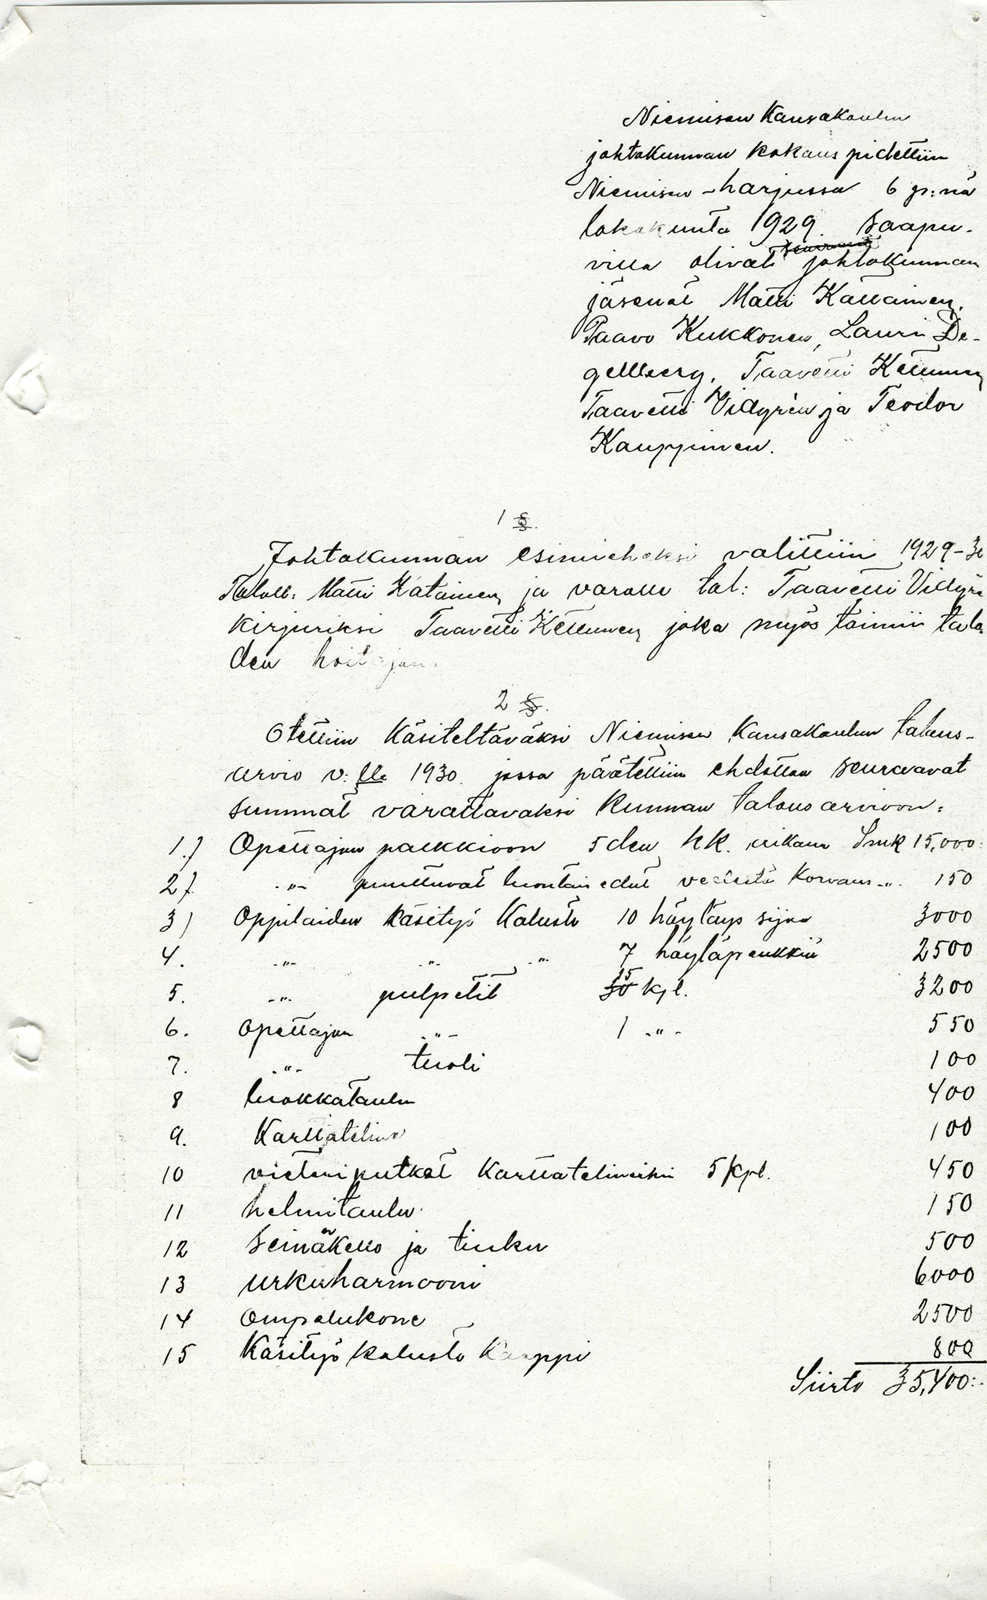 Niemisen Kansakoulun
johtokunnan kokous pidettiin
Niemisen-harjussa 6 p:nä
lokakuuta 1929. Saapu-
villa olivat johtokunnan
jäsenet Matti Kattainen,
Paavo Kukkonen, Lauri De-
gellberg, Taavetti Kettunen
Taavetti Vidgrén ja Teodor
Kauppinen.
1 §.
Johtokunnan esimieheksi valittiin 1929-30
Matti Katainen ja varalle tal: Taavetti Vidgre
kirjuriksi Taavetti Kettunen joka myös toimii talo
den hoitajan.
2 §.
Otettiin Käsiteltäväksi Niemisen Kansakoulun talous-
arvio v:lle 1930. jossa päätettiin ehdottaa seuraavat
summat varattavaksi Kunnan talousarvioon:
1.) Opettajan palkkioon 5den kk. aikana Smk 15,000:
2). -"- puuttuvat luontaisedut korvaus -"- 150
3) Oppilaiden Käsityö Kalusto 10 höyläys sijaa 3000
4. -"- -"- -"- 7 höyläpenkkiä 2500
5. -"- pulpetit 15 kpl. 3200
6. Opettajan -"- 1 -"- 550
7. -"- tuoli 100
8 luokkataulu 400
9. Karttateline 100
10 vieteriputket Karttatelineihin 5 kpl. 450
11 helmitaulu 150
12 Seinäkello ja tiuku 500
13 Urkuharmooni 6000
14 Ompelukone 2500
15 Käsityö kalusto Kaappi 800
Siirto 35,400:-